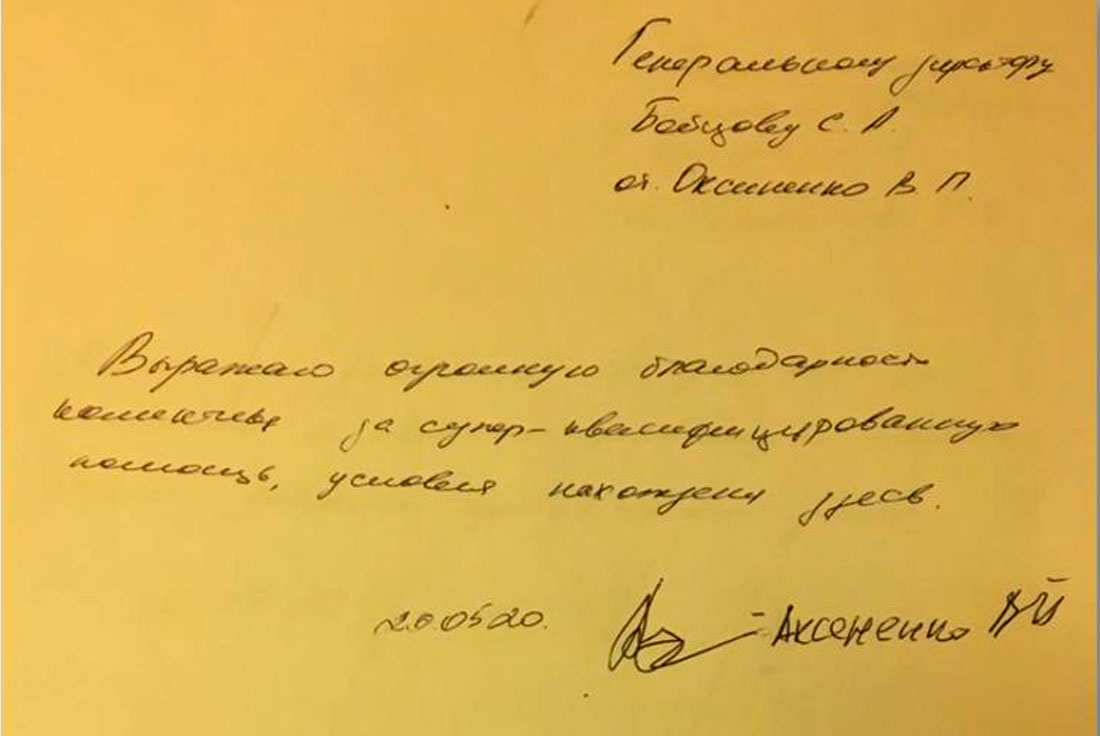 Генеральному директору
Бойцову С. А.
от. Оксиненко В П.
Выражаю огромную благодарность
за супер-квалифицированную
помощь, условия нахождения здесь.
20 05 20.
- Аксененко ВП